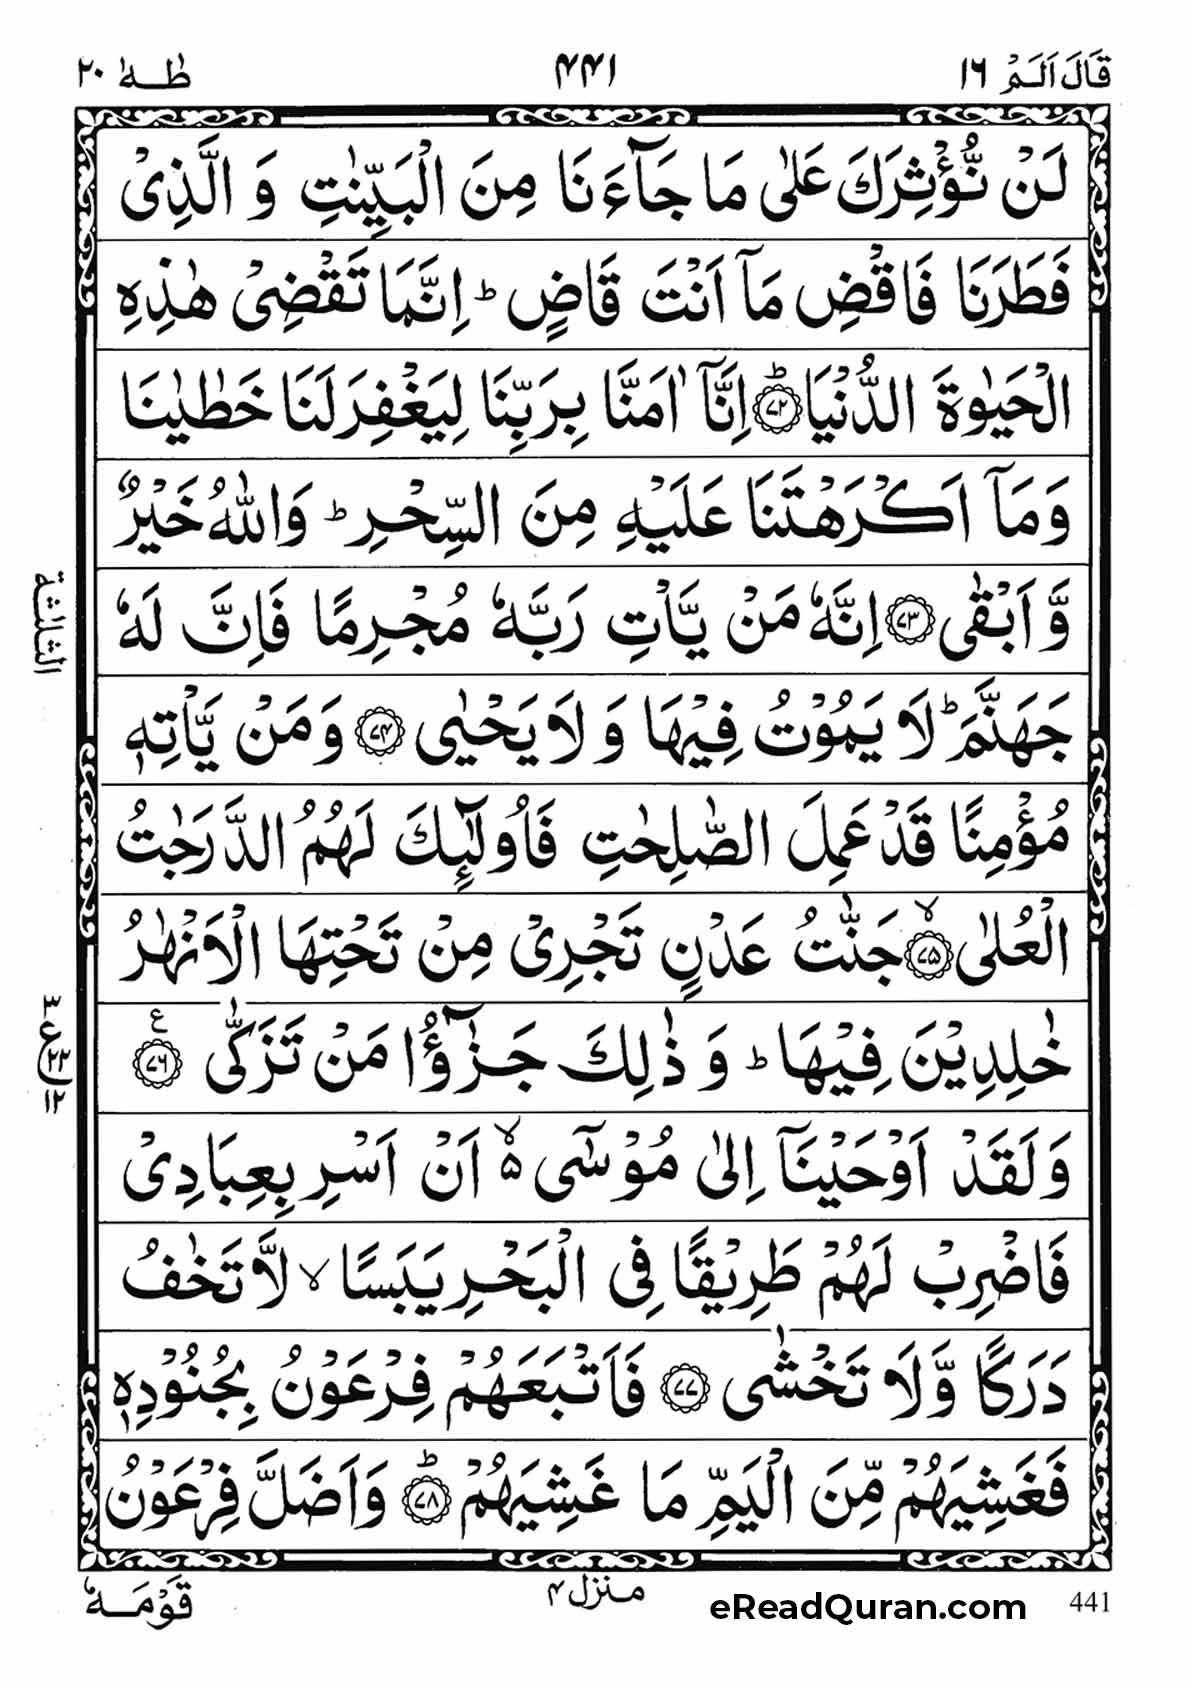 قَالَ اَلَمْ ١٦
٤٤١
طٰهٰ ٢٠
لَنْ نُّؤْثِرَكَ عَلٰى مَا جَآءَنَا مِنَ الْبَيِّنٰتِ وَ الَّذِىْ
فَطَرَنَا فَاقْضِ مَآ اَنْتَ قَاضٍ ؕ اِنَّمَا تَقْضِىْ هٰذِهِ
الْحَيٰوةَ الدُّنْيَا ؕ ﴿٧٢﴾ اِنَّآ اٰمَنَّا بِرَبِّنَا لِيَغْفِرَ لَنَا خَطٰيٰنَا
وَمَآ اَكْرَهْتَنَا عَلَيْهِ مِنَ السِّحْرِ ؕ وَاللّٰهُ خَيْرٌ
وَّ اَبْقٰى ﴿٧٣﴾ اِنَّهٗ مَنْ يَّاْتِ رَبَّهٗ مُجْرِمًا فَاِنَّ لَهٗ
جَهَنَّمَ ؕ لَا يَمُوْتُ فِيْهَا وَ لَا يَحْيٰى ﴿٧٤﴾ وَمَنْ يَّاْتِهٖ
مُؤْمِنًا قَدْ عَمِلَ الصّٰلِحٰتِ فَاُولٰٓئِكَ لَهُمُ الدَّرَجٰتُ
الْعُلٰى ۙ ﴿٧٥﴾ جَنّٰتُ عَدْنٍ تَجْرِىْ مِنْ تَحْتِهَا الْاَنْهٰرُ
خٰلِدِيْنَ فِيْهَا ؕ وَ ذٰلِكَ جَزٰٓؤُا مَنْ تَزَكّٰى ﴿٧٦﴾ ع
وَلَقَدْ اَوْحَيْنَآ اِلٰى مُوْسٰٓى ۙ٥ اَنْ اَسْرِ بِعِبَادِىْ
فَاضْرِبْ لَهُمْ طَرِيْقًا فِى الْبَحْرِ يَبَسًا ۙ لَّا تَخٰفُ
دَرَكًا وَّلَا تَخْشٰى ﴿٧٧﴾ فَاَتْبَعَهُمْ فِرْعَوْنُ بِجُنُوْدِهٖ
فَغَشِيَهُمْ مِّنَ الْيَمِّ مَا غَشِيَهُمْ ؕ ﴿٧٨﴾ وَاَضَلَّ فِرْعَوْنُ
الثلثة
٣
ع ٢٢
١٢
قَوْمَهٗ
منزل ٤
eReadQuran.com
441